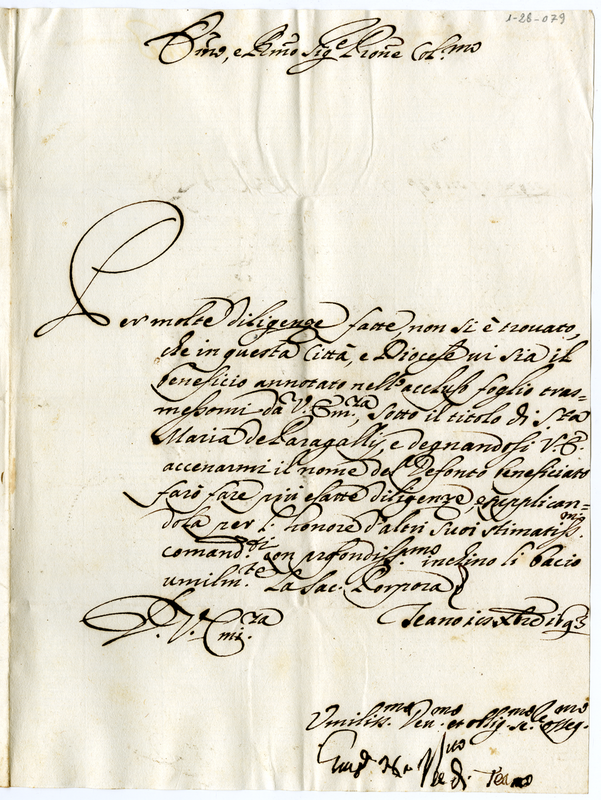 1-28-079
Emo, e Rmo Sigre Prone Col.mo
Per molte diligenze fatte, non si è trouato,
che in questa Città, e Diocese ui sia il
beneficio annotato nell'accluso foglio tras=
messomi da V. Em.za, sotto il titolo di S.ta
Maria de Paragallis, e degnandosi V. E.
accenarmi il nome del Defonto beneficiato
farò fare più esatte diligenze, e supplican=
dola per l'honore d'altri suoi stimatiss.mi
comand.ti con profondiss.mo inchino li bacio
umilm.te La Sac. Porpora
D. V. Emi.za
Teano
Umiliss.mo Deu.mo et obblig.mo Se.re osseq.mo
Vco di Teano